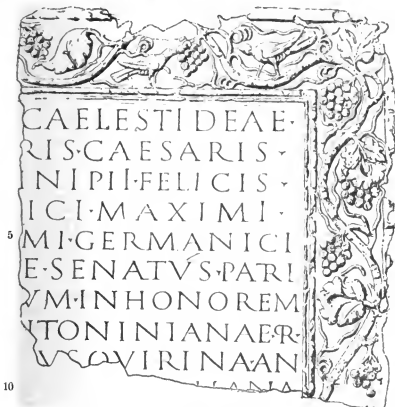 CAELESTI DEAE ·
RIS · CAESARIS ·
NI PII · FELICIS ·
ICI · MAXIMI ·
5 MI · GERMANICI
E · SENATVS · PATRI
VM · IN HONOREM
NTONINIANAE · R
VS QVIRINA · AN
10